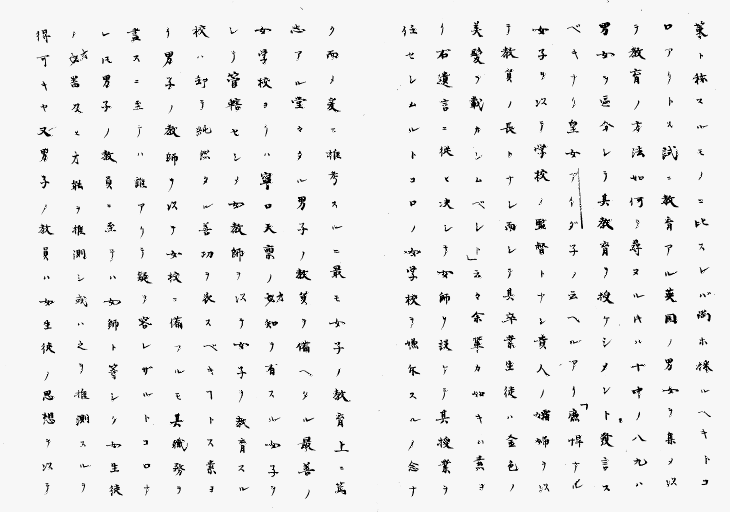 葉ト称スルモノニ比スレバ尚ホ採ルヘキトコ
ロアリトス試ニ教育アル英国ノ男女ヲ集メ以
テ教育ノ方法如何ヲ尋ヌルキハ十中ノ八九ハ
男女ヲ区分シテ其教育ヲ授ケシメント発言ス
ベキナリ皇女アイダ子ノ云ヘルアリ「廉悍ナル
女子ヲ以テ学校ノ監督トナシ貴人ノ孀婦ヲ以
テ教員ノ長トナシ而シテ其卒業生徒ハ金色ノ
美髪ヲ戴カシムベシト」云々余輩カ如キハ素ヨ
リ右遺言ニ従ヒ決シテ女師ヲ設ケテ其授業ヲ
任セシムルトコロノ女学校ヲ嫌忌スルノ念ナ
ク而シテ爰ニ推考スルニ最モ女子ノ教育上ニ篤
志アル堂々タル男子ノ教員ヲ備ヘタル最善ノ
女学校ヨリハ寧ロ天稟ノ才知ヲ有スル女子ヲ
シテ管轄セシメ女教師ヲ以テ女子ヲ教育スル
校ハ却テ純然タル善功ヲ表スベキヿトス素ヨ
リ男子ノ教師ヲ以テ女校ニ備フルモ其職務ヲ
盡スニ至テハ誰アリテ疑ヲ容レザルトコロナ
レ𪜈男子ノ教員ニ至テハ女師ト等シク女生徒
ノ蓄ス才能ヲ推測シ或ハ之ヲ推測スルヲ
得可キヤ又男子ノ教員ハ女生徒ノ思想ヲ以テ